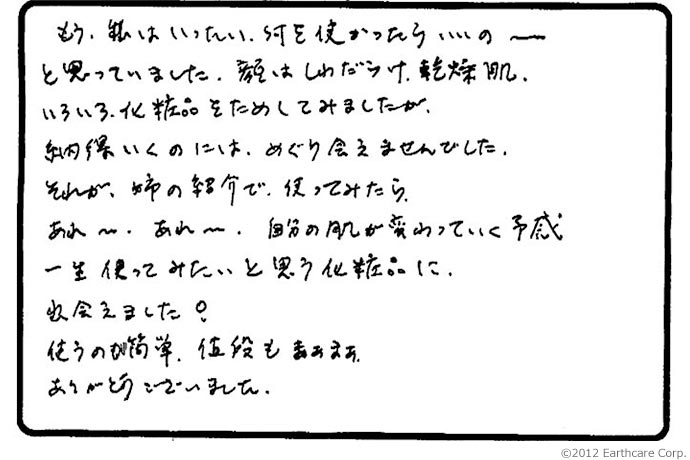 もう、私はいったい、何を使かったらいいの〜
と思っていました。顔はしわだらけ、乾燥肌、
いろいろ、化粧品をためしてみましたが、
納得いくのには、めぐり会えませんでした。
それが、姉の紹介で、使ってみたら、
あれ〜、あれ〜、自分の肌が変わっていく予感
一生使ってみたいと思う化粧品に、
出会えました!
使うのも簡単、値段もまあまあ、
ありがとうございました。
©2012 Earthcare Corp.